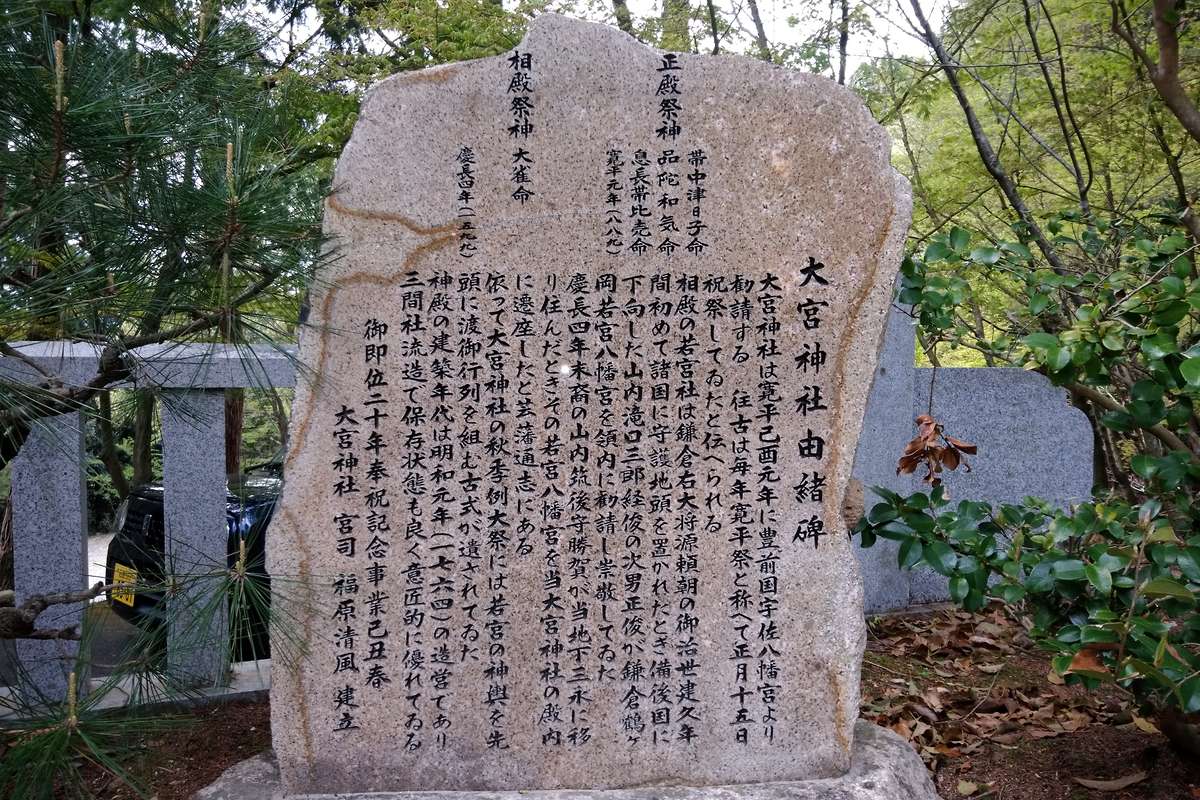 大宮神社由緒碑
正殿祭神
帯中津日子命
品陀和気命
息長帯比売命
寛平元年(八八九)
相殿祭神
大雀命
慶長四年(一五九九)
大宮神社は寛平己酉元年に豊前国宇佐八幡宮より
勧請する 往古は毎年寛平祭と称へて正月十五日
祝祭してゐたと伝へられる
相殿の若宮社は鎌倉右大将源頼朝の御治世建久年
間初めて諸国に守護地頭を置かれたとき備後国に
下向した山内滝口三郎経俊の次男正俊が鎌倉鶴ヶ
岡若宮八幡宮を領内に勧請し崇敬してゐた
慶長四年末裔の山内筑後守勝賀が当地下三永に移
り住んだときその若宮八幡宮を当大宮神社の殿内
に遷座したと芸藩通志にある
依って大宮神社の秋季例大祭には若宮の神輿を先
頭に渡御行列を組む古式が遺されてゐた
神殿の建築年代は明和元年(一七六四)の造営であり
三間社流造で保存状態も良く意匠的に優れてゐる
御即位二十年奉祝記念事業己丑春
大宮神社 宮司 福原清風 建立